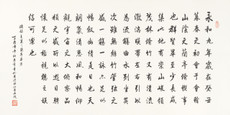 永和九年歲在癸丑
暮春之初會于會稽
山陰之蘭亭修禊事
也群賢畢至少長咸
集此地有崇山峻領
茂林修竹又有清流
激湍映帶左右引以
為流觴曲水列坐其
次雖無絲竹管弦之
盛一觴一詠亦足以
暢敘幽情是日也天
朗氣清惠風和暢仰
觀宇宙之大俯察品
類之盛所以遊目騁
懷足以極視聽之娛
信可樂也